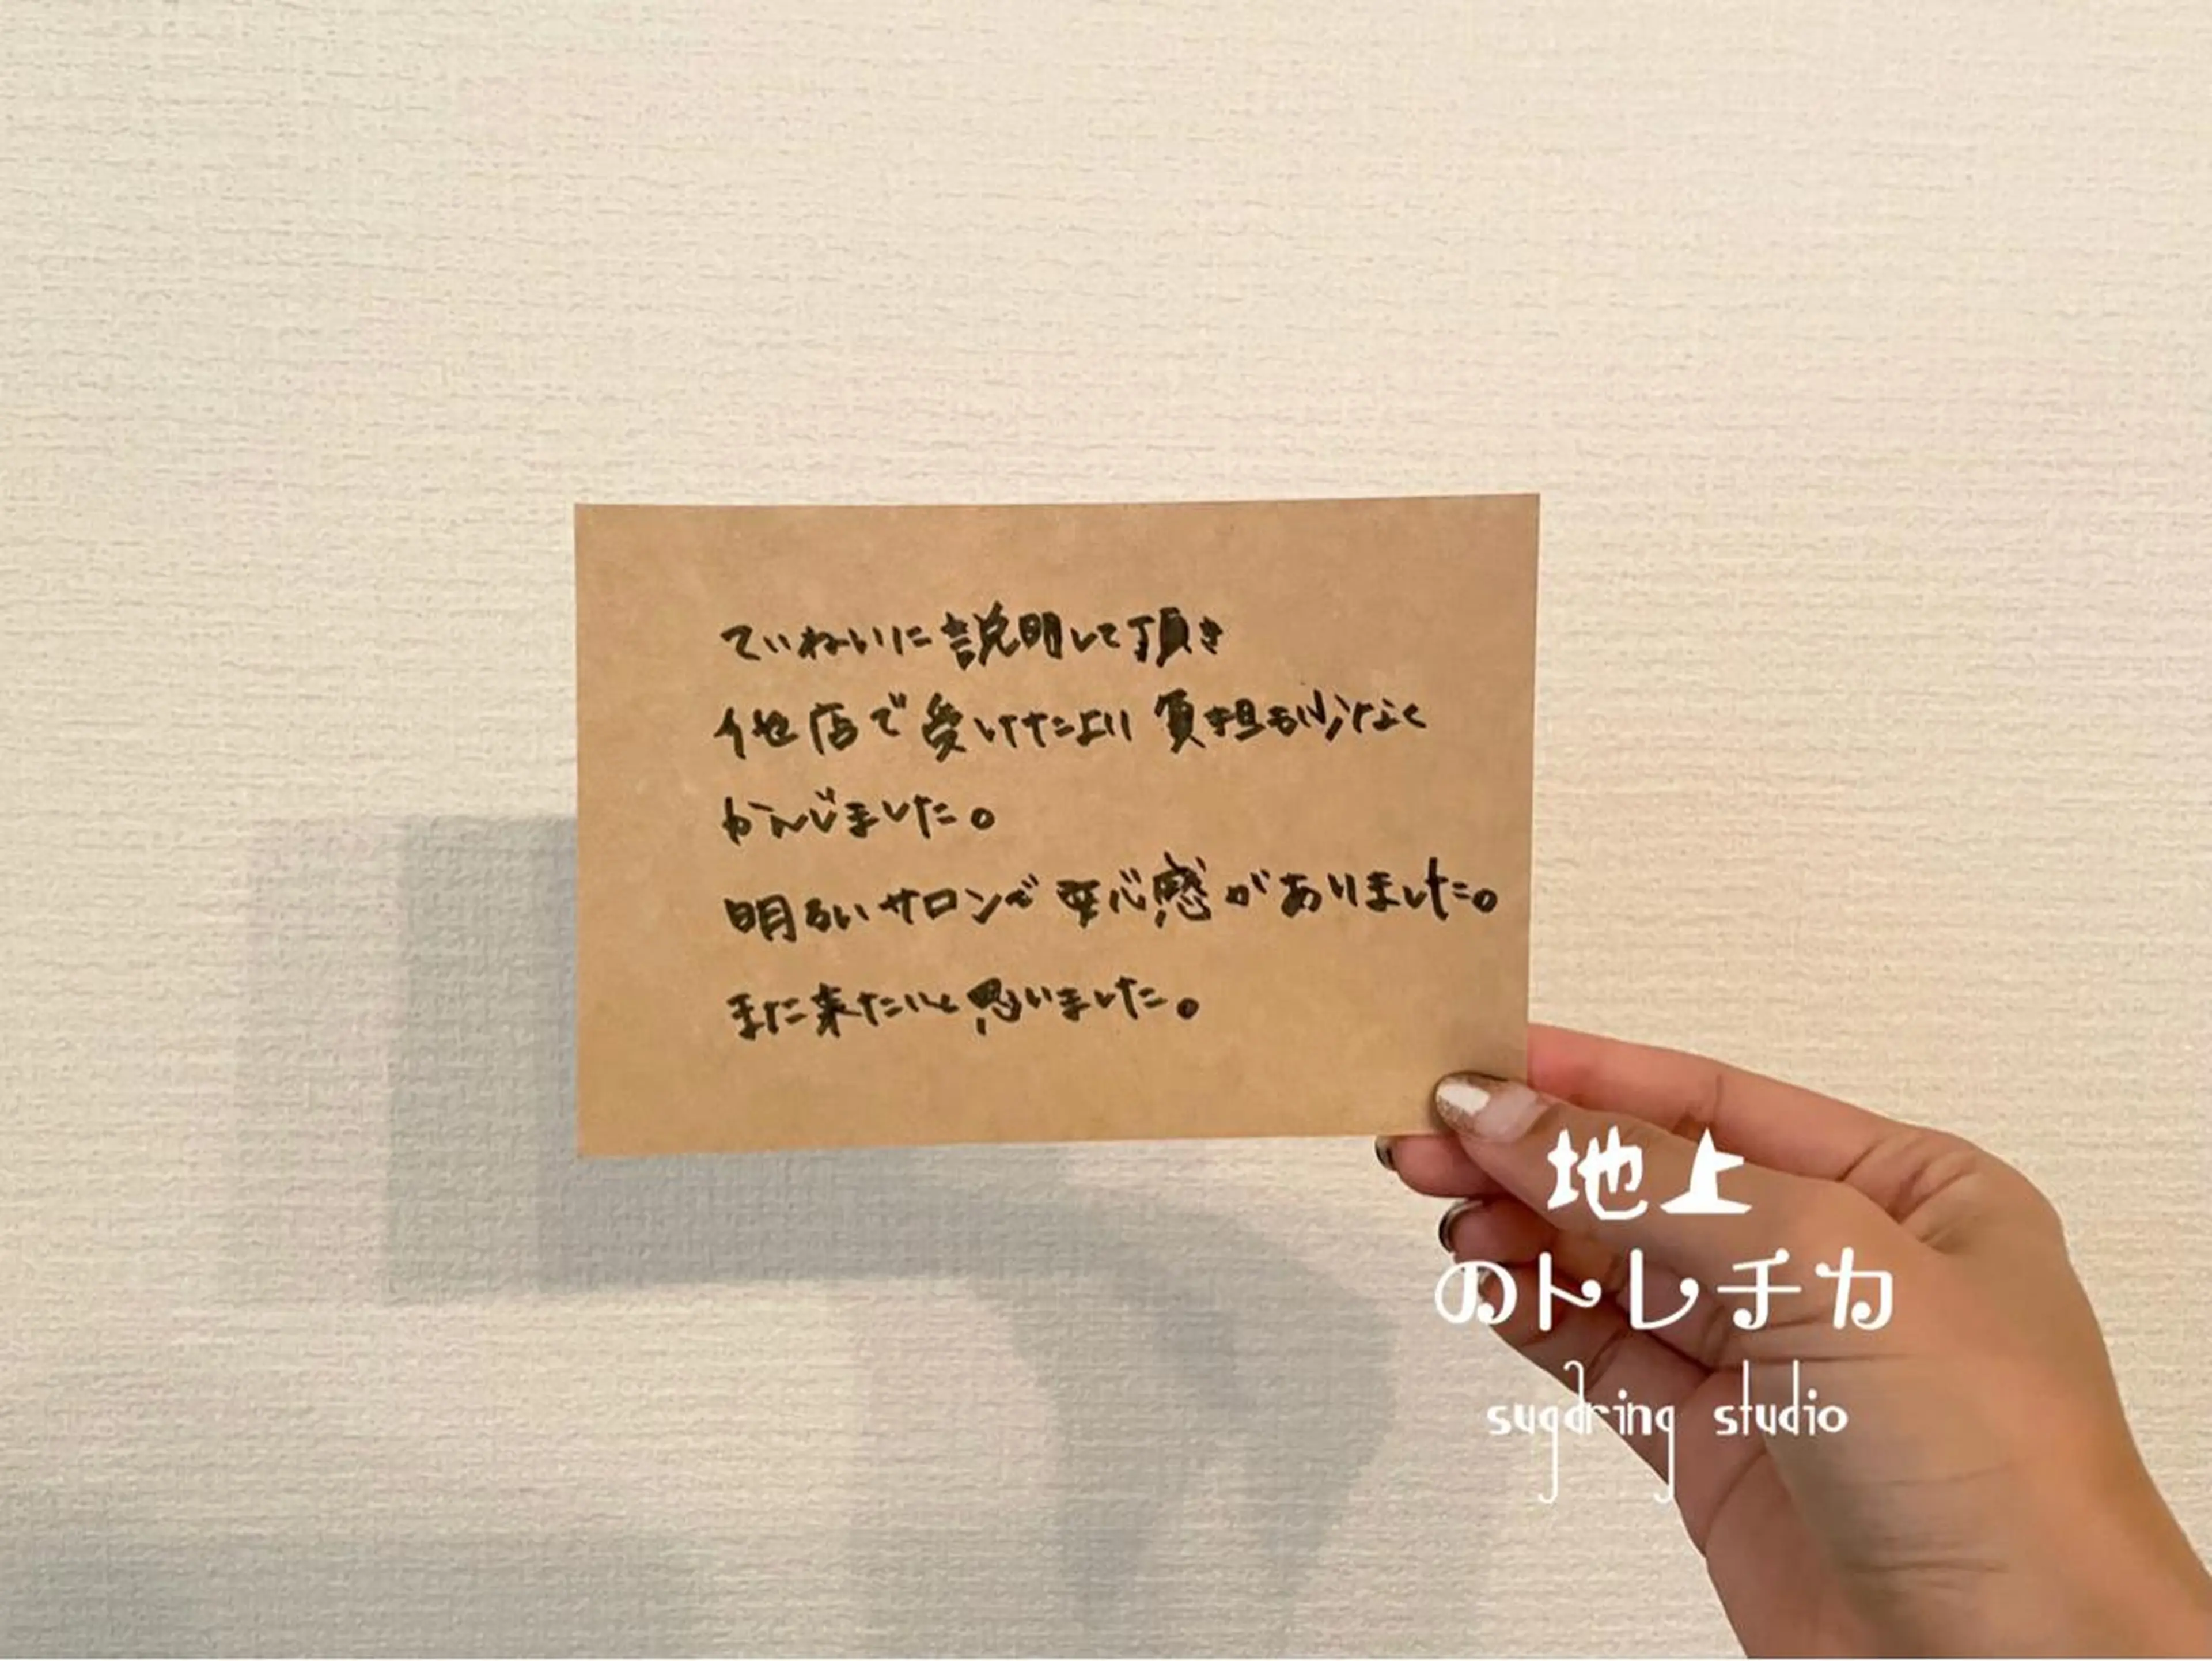 ていねいに説明して頂き
他店で受けたより負担も少なく
かんじました。
明るいサロンで安心感がありました。
また来たいと思いました。
地上
のトレチカ
sugaring studio